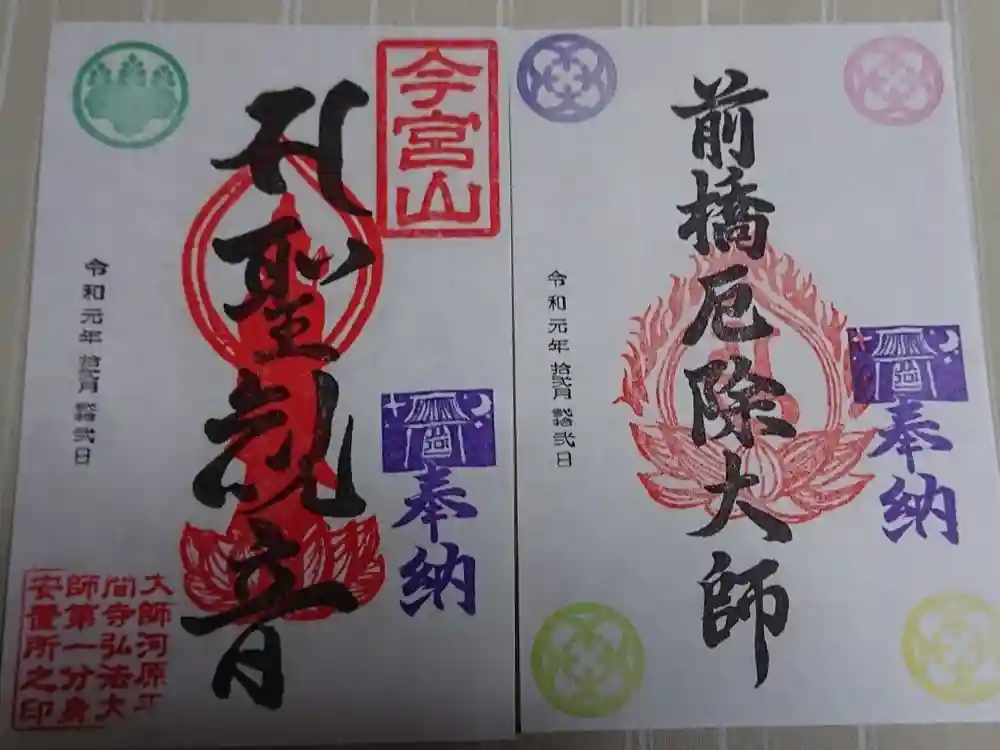 今宮山
聖観音
奉納
令和元年 拾弐月 弐拾弐日
大師河原正
間寺弘法大
師第一分身
安置所之印
前橋厄除大師
奉納
令和元年 拾弐月 弐拾弐日